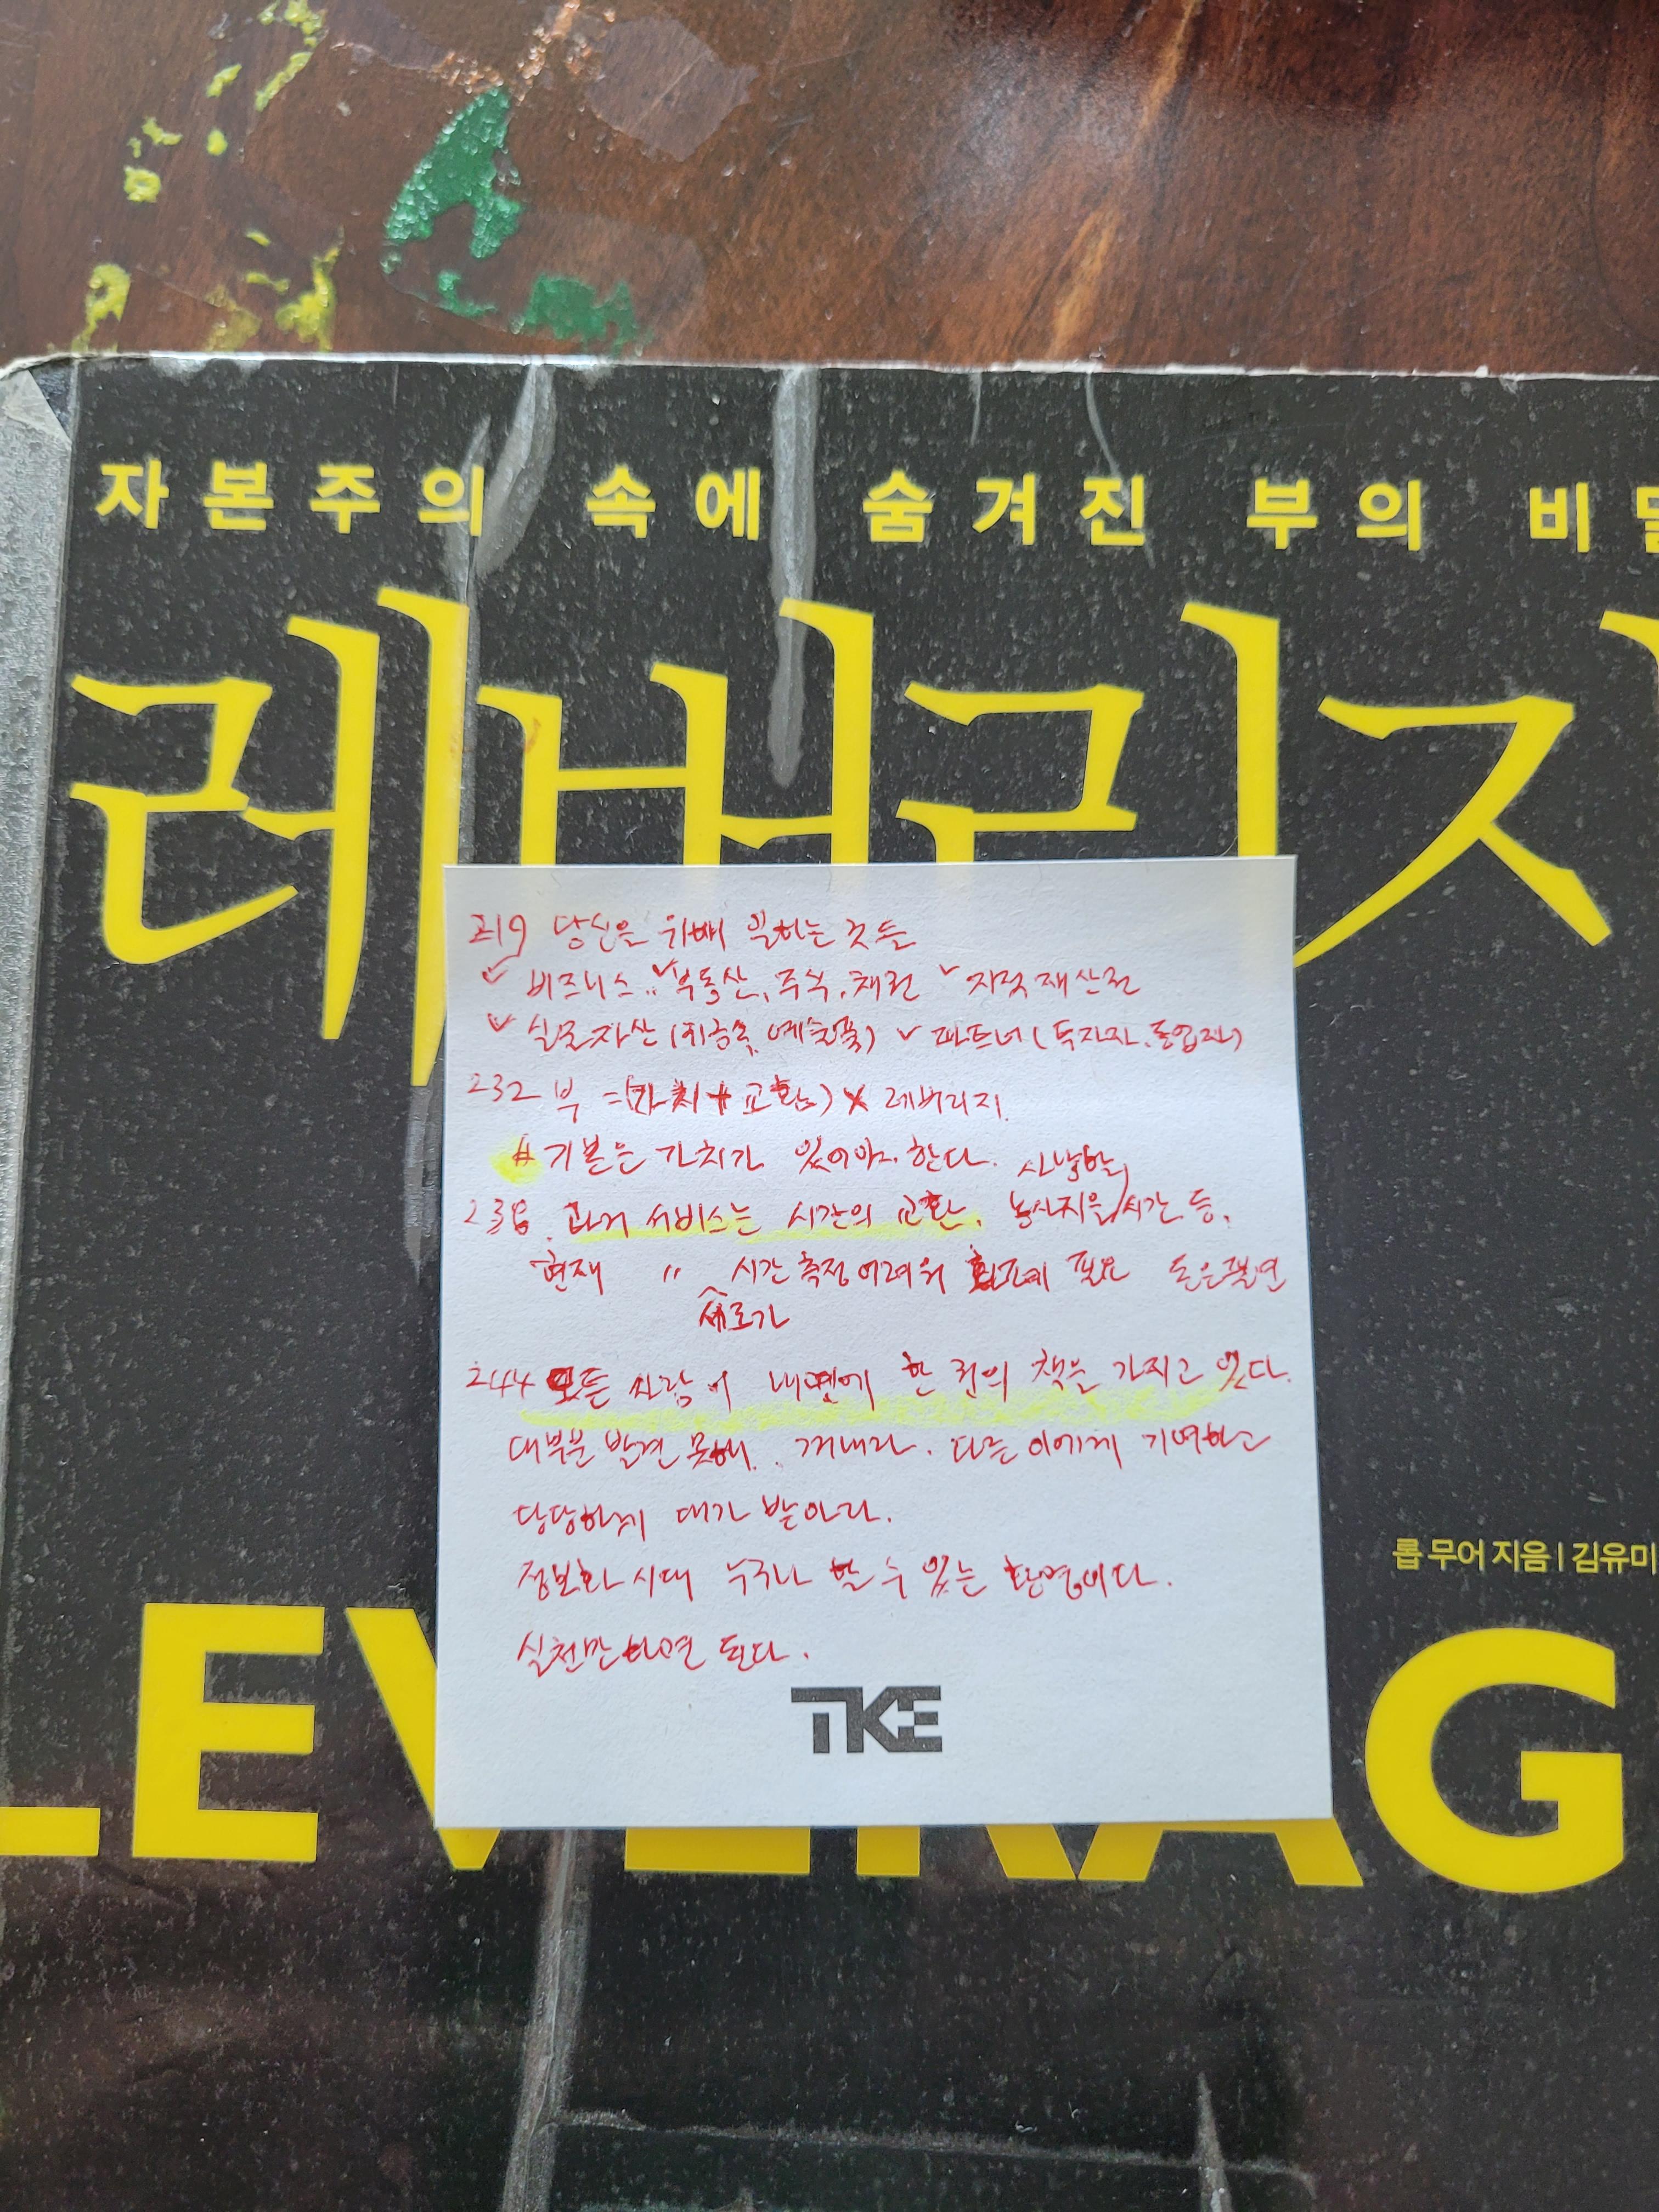 자본주의 속에 숨겨진 부의 비밀
레버리지
219 당신을 위해 일하는 것들
✓ 비즈니스.. ✓부동산, 주식, 채권 ✓ 지적재산권
✓ 실물자산 (귀금속, 예술품) ✓ 파트너 (투자자, 동업자)
232 부 = (가치 + 교환) × 레버리지.
# 기본은 가치가 있어야 한다.
사냥할
238. 과거 서비스는 시간의 교환. 농사지을 시간 등.
현재 〃 시간 측정 어려워 화폐 필요 돈은
세로가
244 모든 사람이 내면에 한 권의 책을 가지고 있다.
대부분 발견 못해. 꺼내라. 다른 이에게 기여하고
당당하게 대가 받아라.
정보화 시대 누구나 할 수 있는 환경이다.
실천만 하면 된다.
TKE
롭 무어 지음 | 김유미
LEVERAG